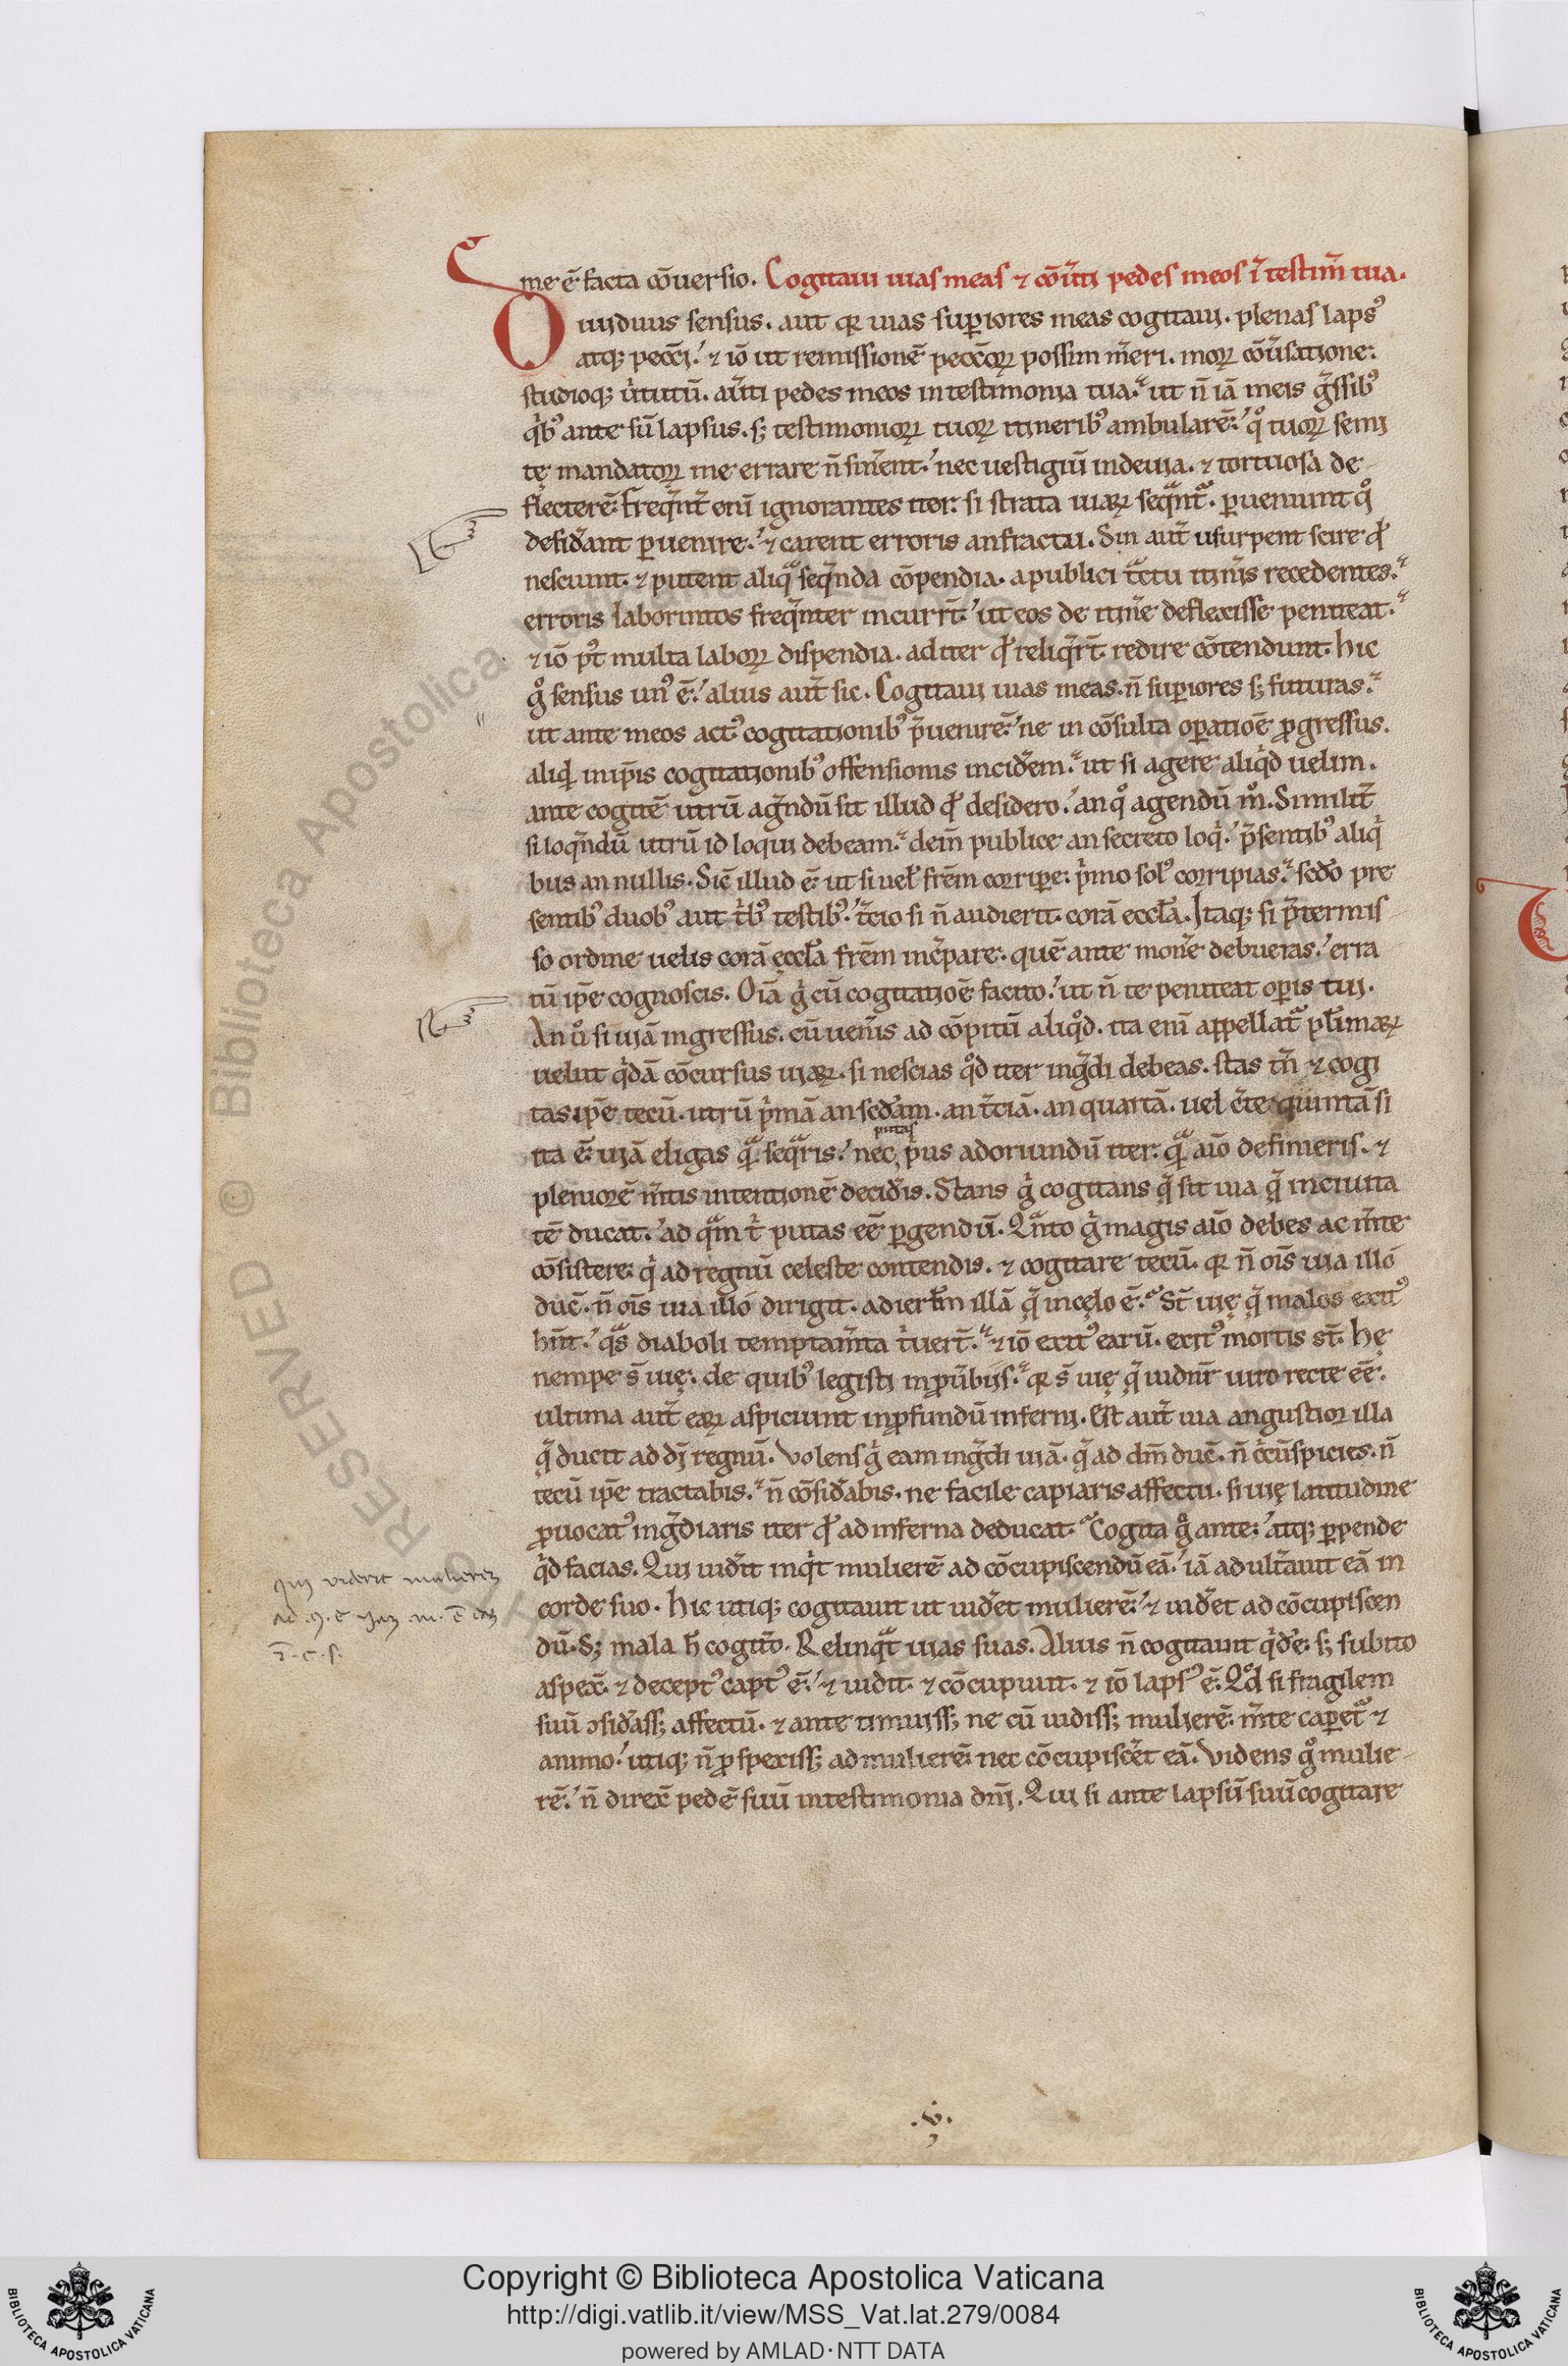 me ē facta cōuersio. Cogitaui uias meas ⁊ cōu̾ti pedes meos ī testim̄ tua.
Diuiduus sensus. aut qꝛ uias suꝑiores meas cogitaui. plenas lapsꝰ
atqꝫ pecc̄i. ⁊ iō ut remissionē pecc̄oꝝ possim m̾eri. moꝝ cōu̾satione:
studioqꝫ u̾tutū. au̾ti pedes meos in testimonia tua. ut n̄ iā meis g̾ssibꝰ
qͥbꝰ ante sū lapsus. sꝫ testimonioꝝ tuoꝝ itineribꝰ ambularē. qͦ tuoꝝ semi
tę mandatoꝝ me errare n̄ sin̾ent. nec uestigiū in deuia. ⁊ tortuosa de-
flecterē. Freq̄nt̾ eni ignorantes iter. si strata uiaꝝ seqᵃnt̾. ꝑueniunt qͦ
desid̾ant ꝑuenire. ⁊ carent erroris anfractu. Sin aut̄ usurpent scire qͩ
nesciunt. ⁊ putent aliqͦ seq̄nda cōpendia. a publici tᵃctu itin̾is recedentes.
erroris laborintos freq̄nter incurrt̄. ut eos de itin̾e deflexisse peniteat.
⁊ iō pͦt multa laboꝝ dispendia. ad iter qͩ reliq̾rt̄ redire cōtendunt. hic
gͦ sensus unꝰ ē. alius aut̄ sic. Cogitaui uias meas. n̄ suꝑiores sꝫ futuras.
ut ante meos actꝰ cogitationibꝰ p̄uenirē. ne in cōsulta oꝑatiōe ꝓgressus.
aliqͥ inip̄is cogitationibꝰ offensionis incid̾em. ut si agere aliqͥd uelim.
ante cogitē utrū ag̾ndū sit illud qͩ desidero. an qͦ agendū mͦ. Similit̾
si loq̄ndū utrū id loqui debeam. dein̄ publice an secreto loqͥ. p̄sentibꝰ aliqͥ
bus an nullis. Sic̄ illud ē ut si uel̄ frēm corriꝑe. pͥmo solꝰ corripias. sedo pre
sentibꝰ duobꝰ aut tͥbꝰ testibꝰ. t̾cio si n̄ audierit. corā eccl̄a. Itaqꝫ si p̄termis-
so ordine uelis corā eccl̄a frēm inc̾pare. quē ante mon̾e debueras. erra
tū ip̄e cognoscis. Oīa gͥ cū cogitatiōe facito. ut n̄ te peniteat oꝑis tui.
An uͦ si uiā ingressus. cū uen̾is ad cōpitū aliqͦd. ita eni appellat̾ pl̄imaꝝ
uelut qͥdā cōcursus uiaꝝ. si nescias qͦd iter ing̾di debeas. stas tn̄ ⁊ cogi
tas ip̄e tecū. utrū pͥmā an sed̾am. an t̾ciā. an quartā. uel c̾te quintā si
putas
ita ē. uiā eligas qᵃ seqᵃris. nec pͥus adoriundū iter. qᵃ aīo definieris. ⁊
pleniorē m̾tis intentionē decid̾is. Stans gͥ cogitans q̄ sit uia q̄ in ciuita
tē ducat. ad qᵃm tͥ putas eē ꝑgendū. Qᵃnto gͥ magis aīo debes ac m̾te
cōsistere. qͥ ad regnū celeste contendis. ⁊ cogitare tecū. qꝛ n̄ oīs uia illó
duc̄. n̄ oīs uia illó dirigit. ad ierl̄m illā q̄ in cęlo ē. St̄ uię q̄ malos exitꝰ
hn̄t. qᵃs diaboli temptam̾ta tͥuert̄. ⁊ iō exitꝰ earū. exitꝰ mortis st̄. hę
nempe s̄ uię. de quibꝰ legisti in ꝓu̾biis. qꝛ s̄ uię q̄ uidnt̄ uiro recte eē.
ultima aut̄ eaꝝ aspiciunt in ꝓfundū inferni. Est aut̄ uia angustior illa
q̄ ducit ad dī regnū. Volens gͥ eam ing̾di uiā. q̄ ad dm̄ duc̄. n̄ cͥcūspicies. n̄
tecū ip̄e tractabis. n̄ cōsid̾abis. ne facile capiaris affectu. si uię latitudine
ꝓuocatꝰ ing̾diaris iter qͩ ad inferna deducat. Cogita gͦ ante. atqꝫ ꝑpende
qͥd facias. Qui uid̾it inqͥt mulierē ad cōcupiscendū eā. iā adult̾auit eā in
corde suo. Hic utiqꝫ cogitauit ut uid̾et mulierē. ⁊ uid̾et ad cōcupiscen
dū. Sꝫ mala h̄ cogit̄o. Relinqᵃt uias suas. Alius n̄ cogitauit qͥdē. sꝫ subito
aspex̄. ⁊ deceptꝰ captꝰ ē. ⁊ uidit. ⁊ cōcupiuit. ⁊ iō lapsꝰ ē. Qͦd si fragilem
suū ↄsid̾assꝫ affectū. ⁊ ante timuissꝫ ne cū uidissꝫ mulierē. m̾te caꝑet̾ ⁊
animo. utiqꝫ n̄ ꝓspexissꝫ ad mulierē. nec cōcupisc̾et eā. Videns gͦ mulie-
rē. n̄ direx̄ pedē suū in testimonia dn̄i. Qui si ante lapsū suū cogitare
Qui viderit mulierem
ad .ↄ. e iam m. ē eaꝫ
ī. c. s.
.v.
RESERVED © Biblioteca Apostolica
Copyright © Biblioteca Apostolica Vaticana
http://digi.vatlib.it/view/MSS_Vat.lat.279/0084
powered by AMLAD·NTT DATA
BIBLIOTECA APOSTOLICA VATICANA
BIBLIOTECA APOSTOLICA VATICANA